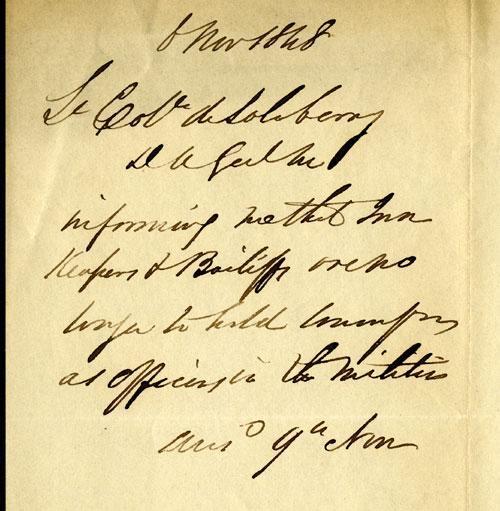 8 Nov 1848
Lt Colo. de Salaberry
D A Genl Mc
informing me that Inn
Keepers & Bailiffs are no
longer to hold commns
as officers in the Militia
ansd 9th Nov